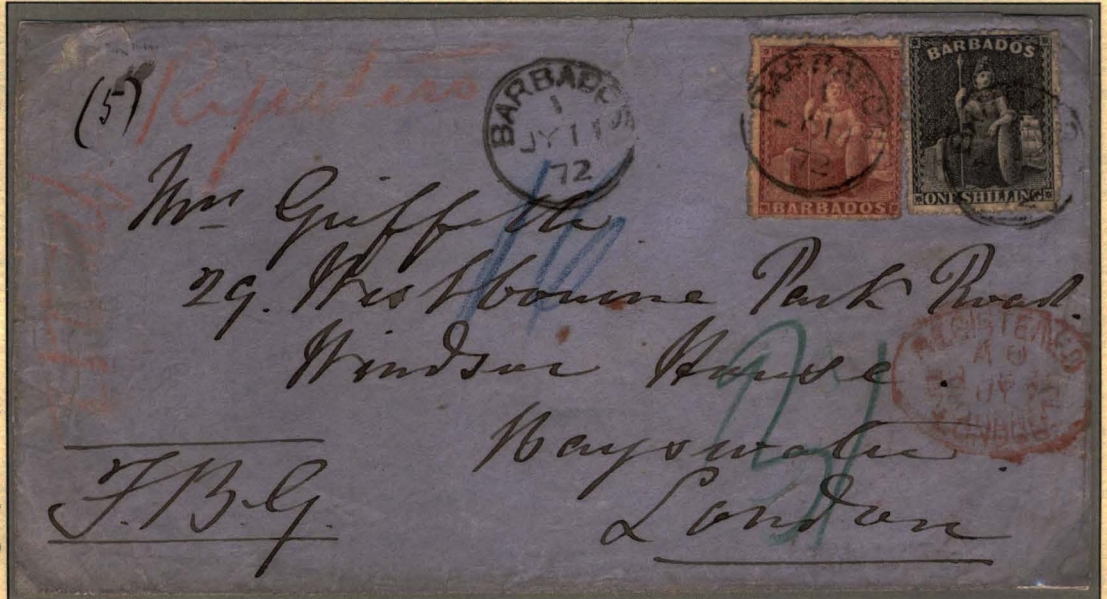 (5) Registered
BARBADOS
1
JY 11
72
BARBADOS
72
BARBADOS
BARBADOS
ONE SHILLING
Mrs Griffith
29. Westbourne Park Road.
Windsor House.
Bayswater.
London
F.B.G.
REGISTERED
JY
LONDON